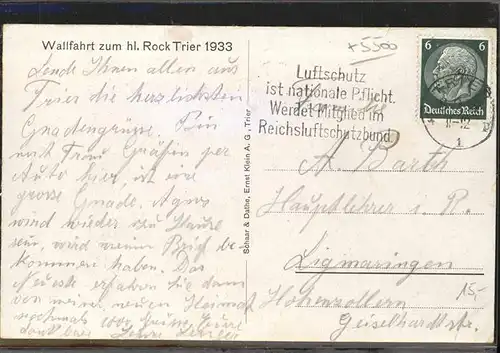 Wallfahrt zum hl. Rock Trier 1933
Sende Ihnen allen aus
Trier die herzlichsten
Gnadengrüsse. Bin
mit Frau Gräfin per
Auto hier, ist eine
grosse Gnade. Agnes
wird wieder zu Hause
sein, wird meinen Brief be-
kommen haben. Das
Neueste erfahren Sie dann
von meiner neuen Heimat
nochmals 1000 Grüsse Eure
dankbare
Schaar & Dathe, Ernst Klein A. G., Trier
+5500
Luftschutz
ist nationale Pflicht.
Werdet Mitglied im
Reichsluftschutzbund.
6 6
Deutsches Reich
11-12
1
A. Barth
Hauptlehrer i. R.
Sigmaringen
Hohenzollern
15,-